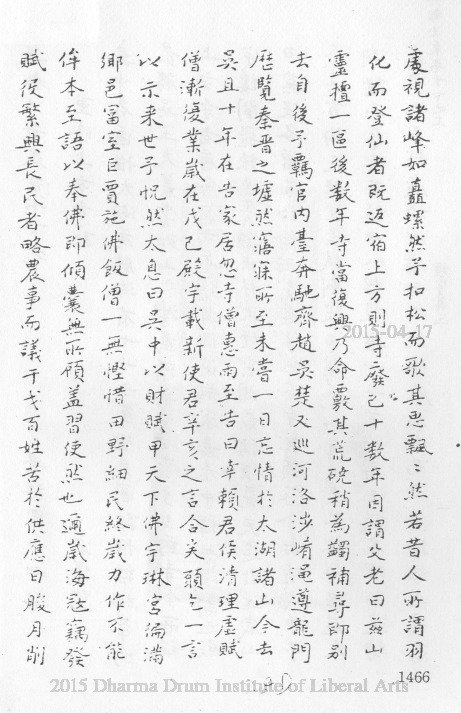 處視諸峰如矗螺然予扣松而歌其思飄飄然若昔人所謂羽
化而登仙者既返宿上方則寺廢已十數年因謂父老曰茲山
靈檀一區後數年寺當復興乃命覈其荒硗稍為蠲補尋即別
去自後予羈官内臺奔馳齊趙吳楚又巡河洛涉崤澠遵龍門
歷覽秦晉之墟然寤寐所至未嘗一日忘情於太湖諸山今去
吳且十年在告家居忽寺僧惠雨至告曰幸賴君侯清理虛賦
僧漸復業歲在戊己殿宇載新使君辛亥之言合矣願乞一言
以示来世予怳然太息曰吳中以財賦甲天下佛宇琳宮徧滿
鄉邑富室巨賈施佛飯僧一無慳惜田野細民終歲力作不能
侔本至語以奉佛即傾囊無所顧盖習使然也邇歲海寇竊發
賦役繁興長民者略農事而議干戈百姓苦於供應日朘月削
1466
2015-04-17
2015 Dharma Drum Institute of Liberal Arts